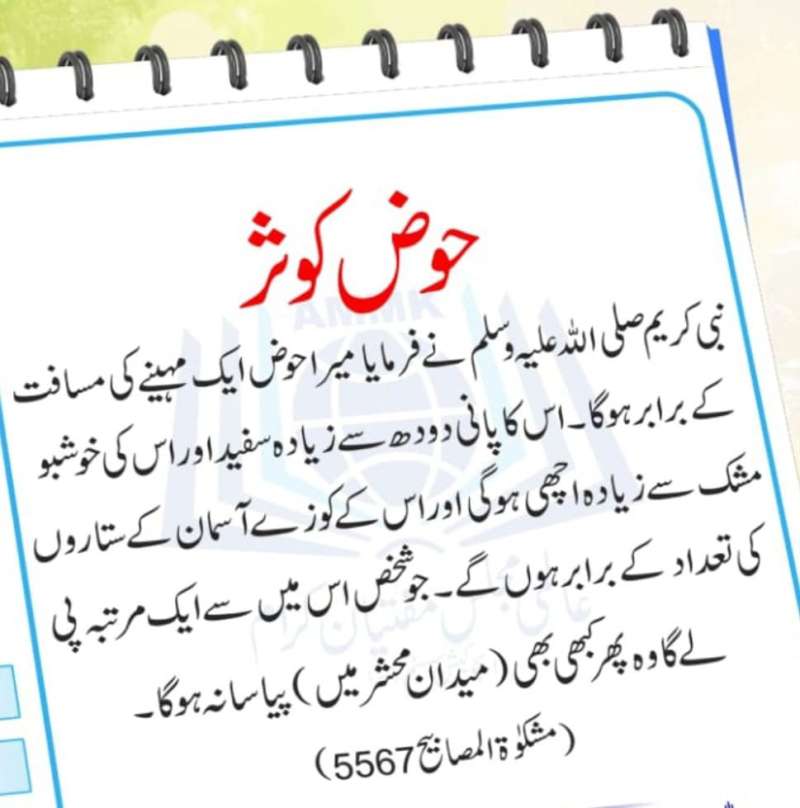 حوض کوثر
نبی کریم صلی اللہ علیہ وسلم نے فرمایا میرا حوض ایک مہینے کی مسافت
کے برابر ہوگا۔ اس کا پانی دودھ سے زیادہ سفید اور اس کی خوشبو
مشک سے زیادہ اچھی ہوگی اور اس کے کوزے آسمان کے ستاروں
کی تعداد کے برابر ہوں گے۔ جو شخص اس میں سے ایک مرتبہ پی
لے گا وہ پھر کبھی بھی (میدان محشر میں) پیاسا نہ ہوگا۔
(مشکوٰۃ المصابیح 5567)
AMMK
عالمی مجلس مفتیان کرام